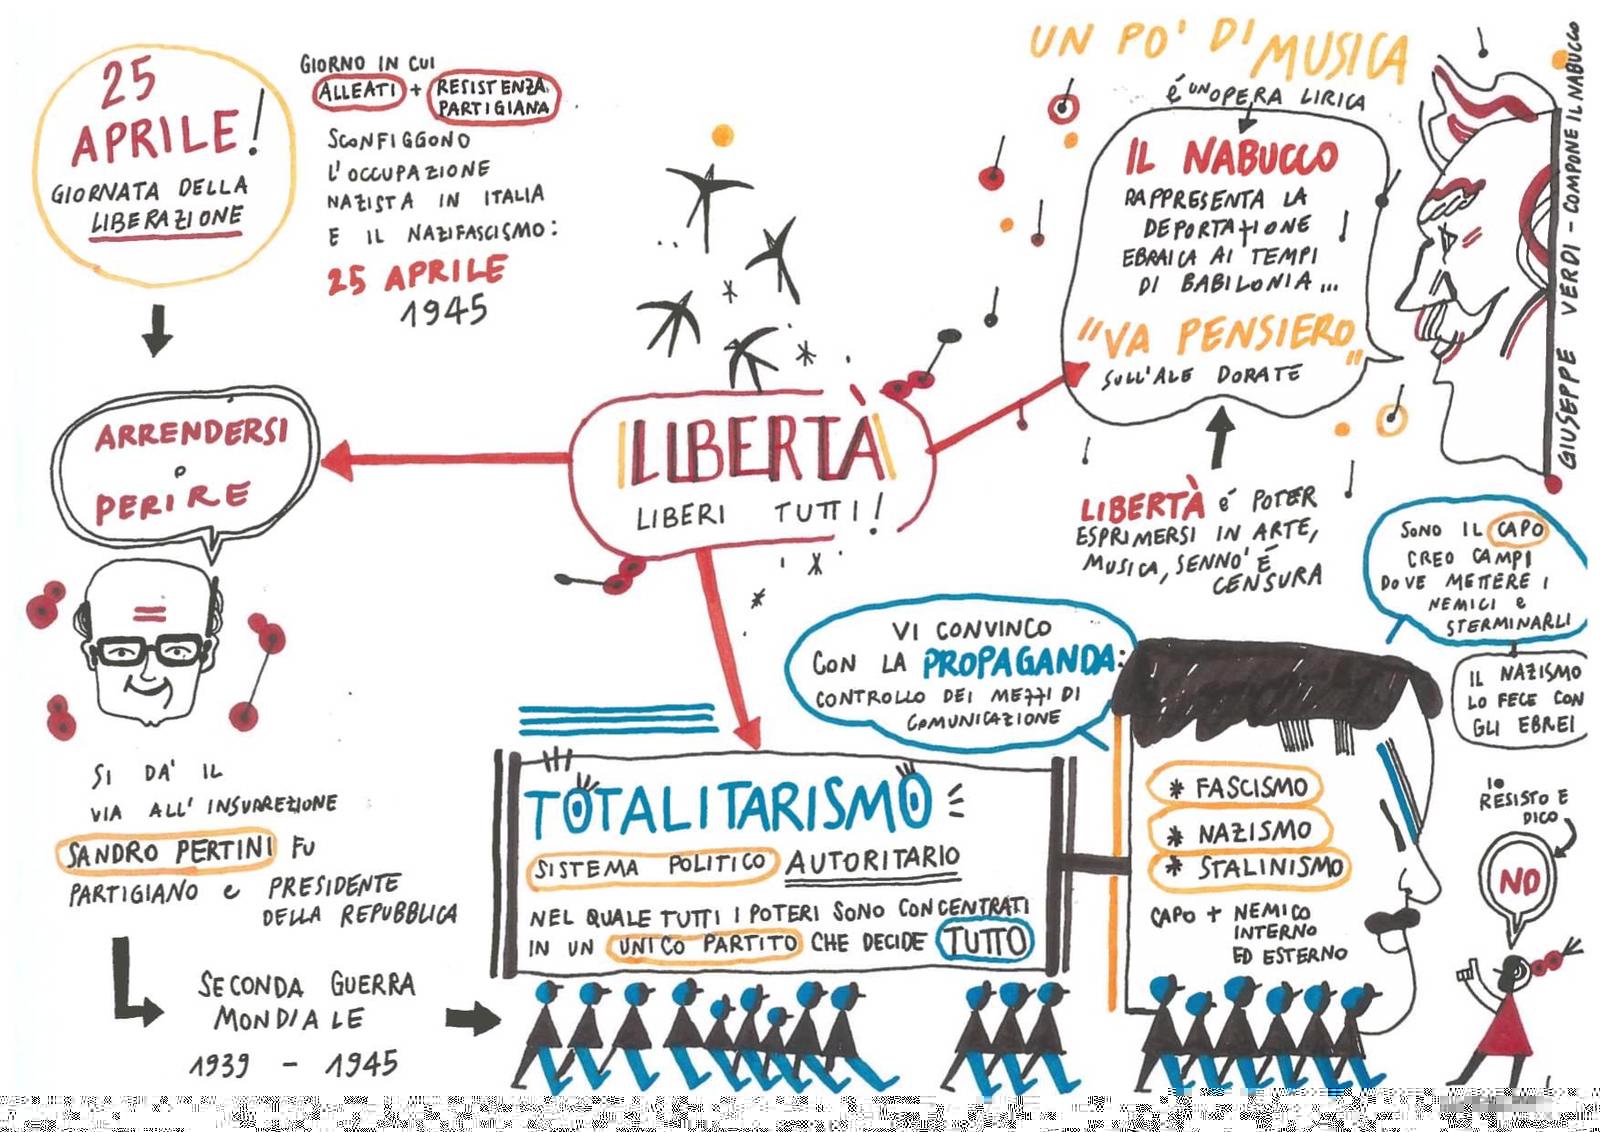 25
APRILE!
GIORNATA DELLA
LIBERAZIONE
GIORNO IN CUI
ALLEATI + RESISTENZA
PARTIGIANA
SCONFIGGONO
L'OCCUPAZIONE
NAZISTA IN ITALIA
E IL NAZIFASCISMO:
25 APRILE
1945
UN PO' DI MUSICA
é UN OPERA LIRICA
IL NABUCCO
RAPPRESENTA LA
DEPORTAZIONE
EBRAICA AI TEMPI
DI BABILONIA...
"VA PENSIERO"
SULL'ALE DORATE
GIUSEPPE VERDI - COMPONE IL NABUCCO
LIBERTÀ é POTER
ESPRIMERSI IN ARTE,
MUSICA, SENNO' É
CENSURA
LIBERTÀ
LIBERI TUTTI!
ARRENDERSI
o
PERIRE
SI DA' IL
VIA ALL' INSURREZIONE
SANDRO PERTINI FU
PARTIGIANO e PRESIDENTE
DELLA REPUBBLICA
SECONDA GUERRA
MONDIALE
1939 - 1945
VI CONVINCO
CON LA PROPAGANDA:
CONTROLLO DEI MEZZI DI
COMUNICAZIONE
TOTALITARISMO
SISTEMA POLITICO AUTORITARIO
NEL QUALE TUTTI I POTERI SONO CONCENTRATI
IN UN UNICO PARTITO CHE DECIDE TUTTO
SONO IL CAPO
CREO CAMPI
DOVE METTERE I
NEMICI e
STERMINARLI
IL NAZISMO
LO FECE CON
GLI EBREI
* FASCISMO
* NAZISMO
* STALINISMO
CAPO + NEMICO
INTERNO
ED ESTERNO
IO
RESISTO E
DICO
NO